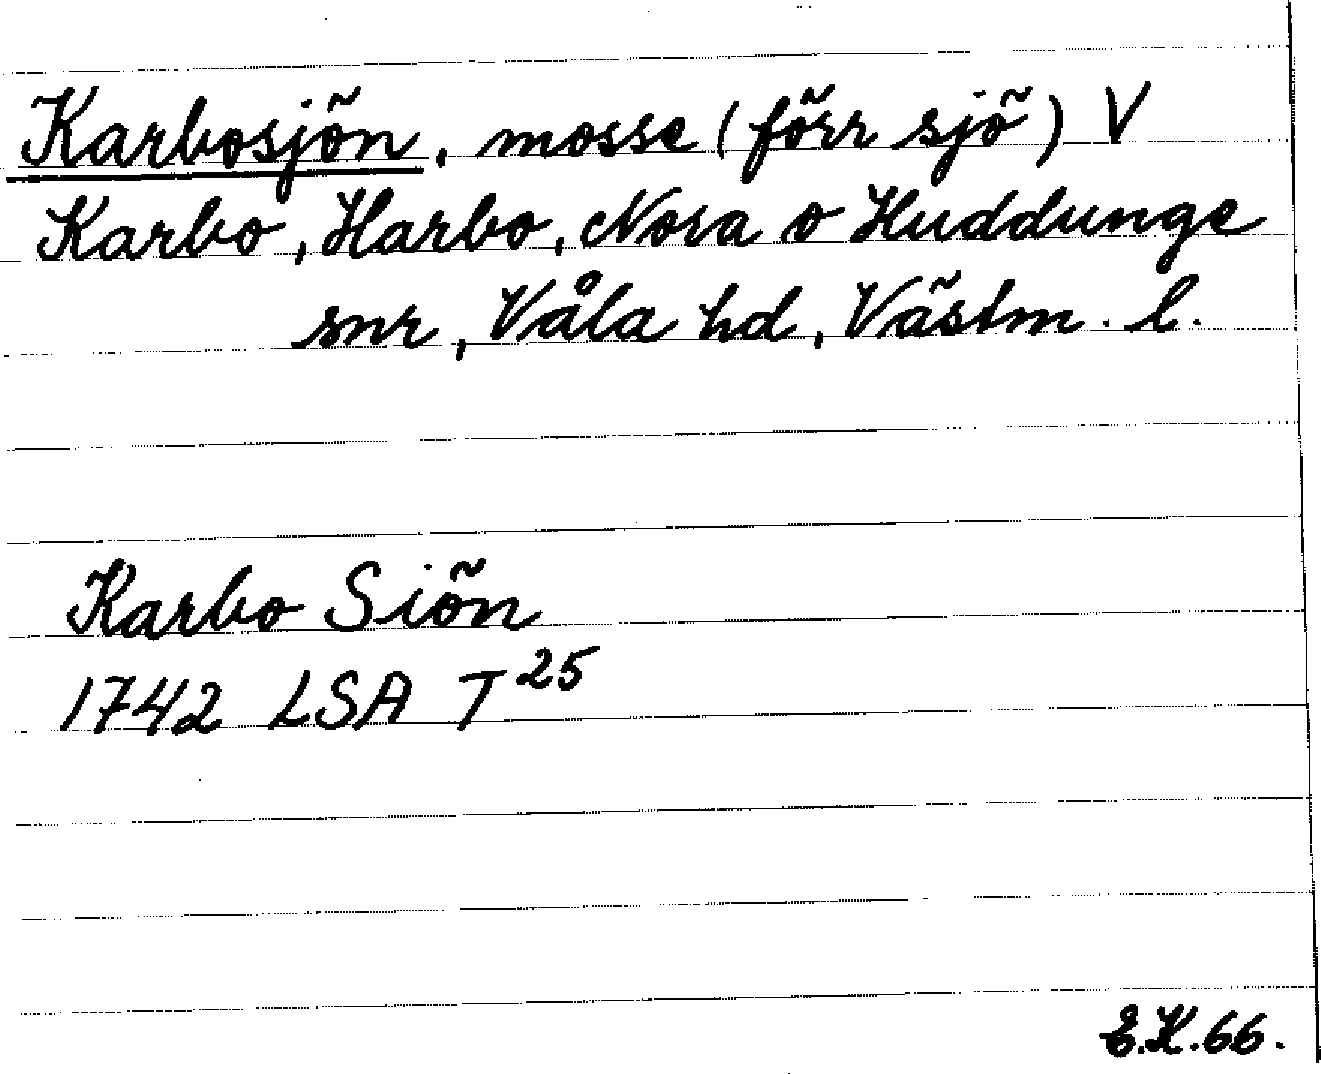 Karbosjön, mosse (förr sjö) V
Karbo, Harbo, Nora o Huddunge
snr, Våla hd, Västm. l.
Karbo Siön
1742 LSA T 25
E.K. 66.